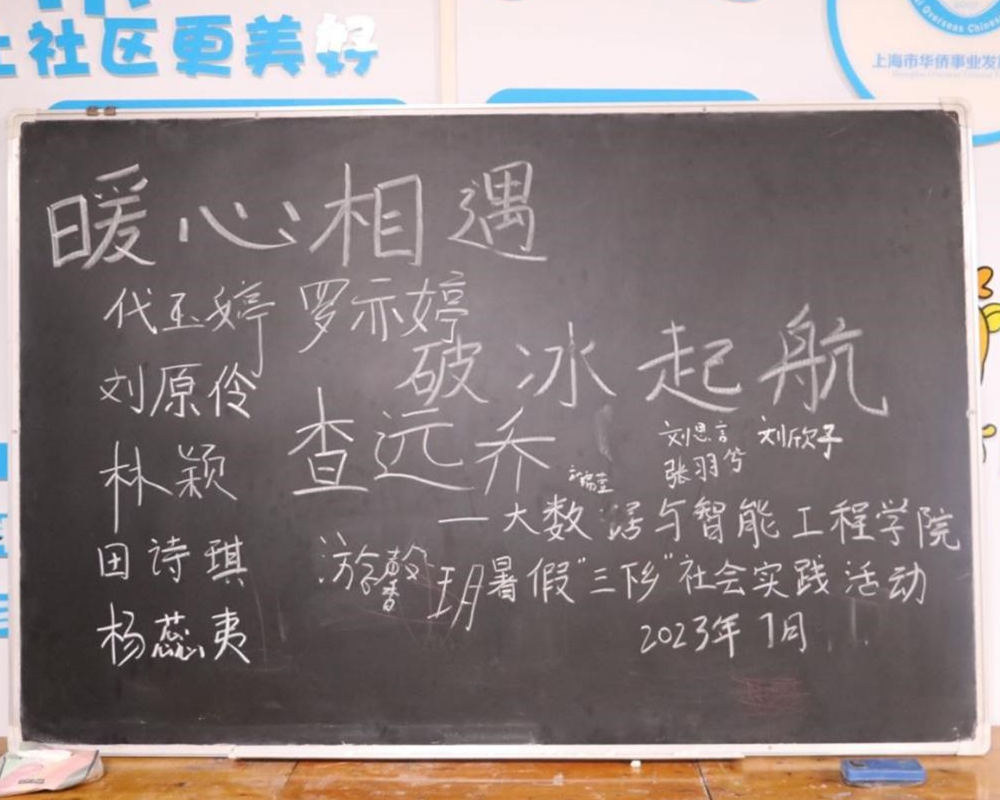 社区更美好
Overseas Chine
上海市华侨事业发
暖心相遇
代玉婷 罗示婷
破冰起航
刘原伶
查远乔
刘思言 刘欣子
张羽兮
林颖
—大数据与智能工程学院
田诗琪
玥
暑假"三下乡"社会实践活动
杨蕊夷
2023年7月